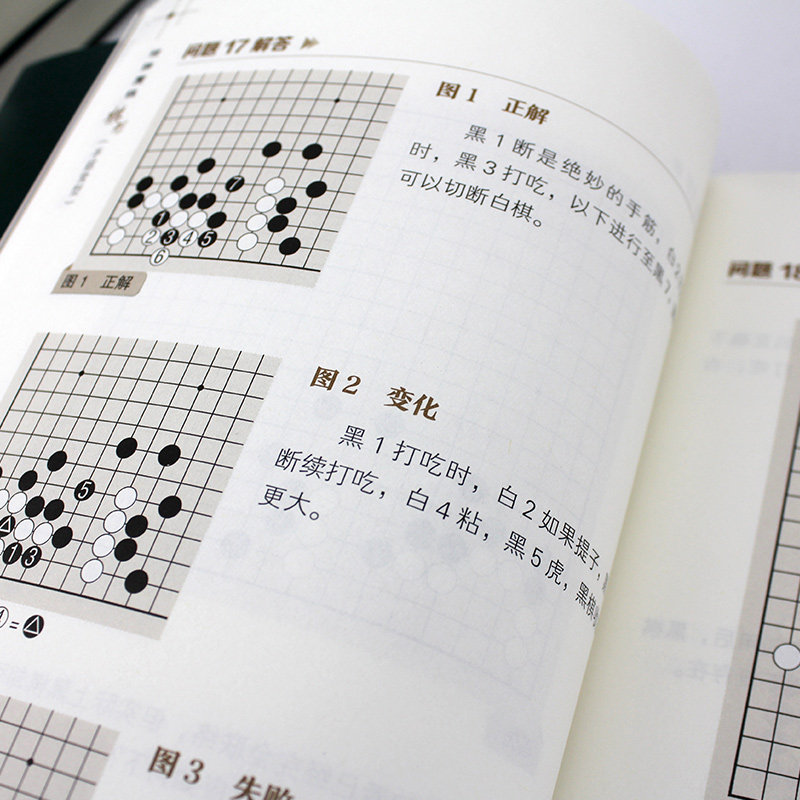 问题 17 解答
图 1 正解
黑 1 断是绝妙的手筋，白 2
时，黑 3 打吃，以下进行至黑 7，
可以切断白棋。
7
1
2 3 4 5
6
图 1 正解
图 2 变化
黑 1 打吃时，白 2 如果提子，
断续打吃，白 4 粘，黑 5 虎，黑棋
更大。
5
1 3
4 =
图 3 失败
问题 18